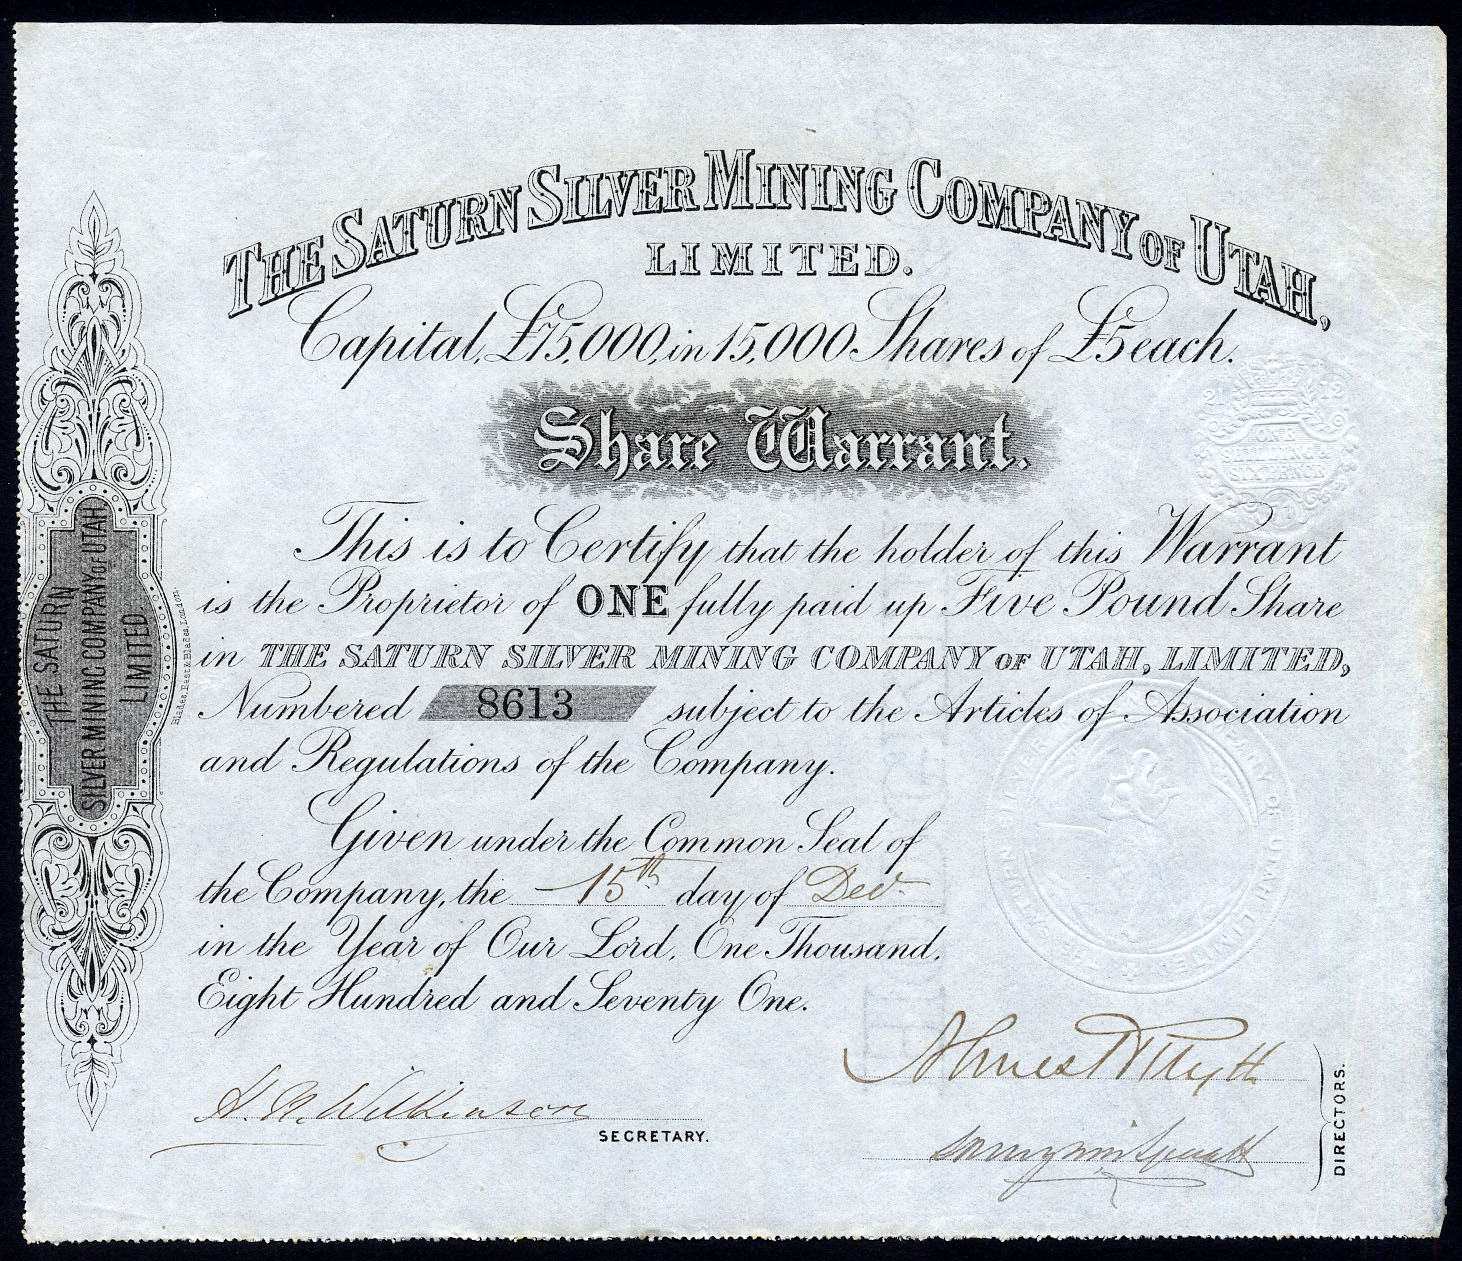 THE SATURN SILVER MINING COMPANY OF UTAH,
LIMITED.
Capital, £75,000, in 15,000 Shares of £5 each.
Share Warrant.
21 12
ONE
SHILLING &
SIXPENCE
71
This is to Certify that the holder of this Warrant
is the Proprietor of ONE fully paid up Five Pound Share
in THE SATURN SILVER MINING COMPANY OF UTAH, LIMITED,
Numbered 8613 subject to the Articles of Association
and Regulations of the Company.
Given under the Common Seal of
the Company, the 15th day of Dec.
in the Year of Our Lord, One Thousand,
Eight Hundred and Seventy One.
H. N. Wilkinson
SECRETARY.
DIRECTORS.
THE SATURN
SILVER MINING COMPANY OF UTAH
LIMITED
Blades, East & Blades, London.